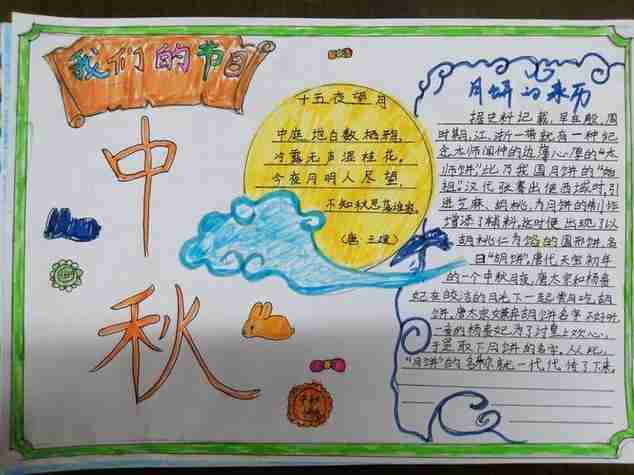 我们的节日
中秋
十五夜望月
中庭地白数栖鸦，
冷露无声湿桂花。
今夜月明人尽望，
不知秋思落谁家。
（唐 王建）
月饼的来历
据史料记载，早在殷、周
时期，江、浙一带就有一种纪
念太师闻仲的边薄心厚的“太
师饼”，此乃我国月饼的“始
祖”。汉代张骞出使西域时，引
进芝麻、胡桃，为月饼的制作
增添了辅料，这时便出现了以
胡桃仁为馅的圆形饼，名
曰“胡饼”。唐代天宝初年
的一个中秋月夜，唐太宗和杨贵
妃在皎洁的月光下一起赏月吃胡
饼，唐太宗嫌弃胡饼名字不好听，
一旁的杨贵妃为了讨皇上欢心，
于是取下月饼的名字。从此，
“月饼”的名称就一代代传了下来。